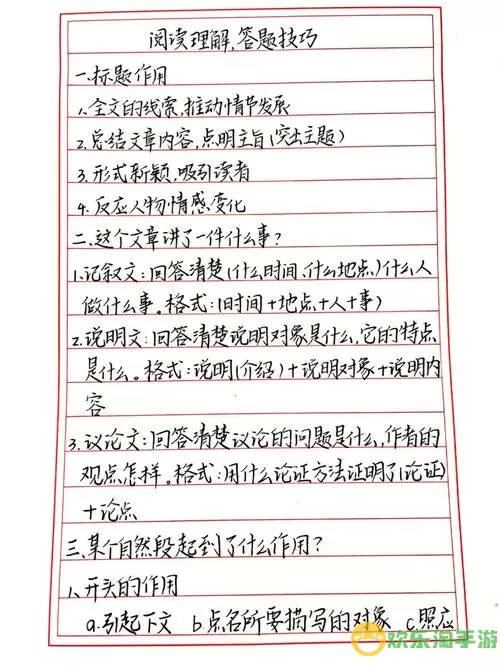 阅读理解,答题技巧
一.标题作用
1.全文的线索,推动情节发展
2.总结文章内容,点明主旨(突出主题)
3.形式新颖,吸引读者
4.反应人物情感变化
二.这个文章讲了一件什么事?
1.记叙文:回答清楚(什么时间、什么地点)什么人
做什么事。格式:(时间+地点+人+事)
2.说明文:回答清楚说明对象是什么,它的特点
是什么。格式:说明(介绍)+说明对象+说明内
容
3.议论文:回答清楚议论的问题是什么,作者的
观点怎样。格式:用什么论证方法证明了(论证)
+论点
三.某个自然段起到了什么作用?
1.开头的作用
a.引起下文 b.点名所要描写的对象 c.照应
欢乐淘手游